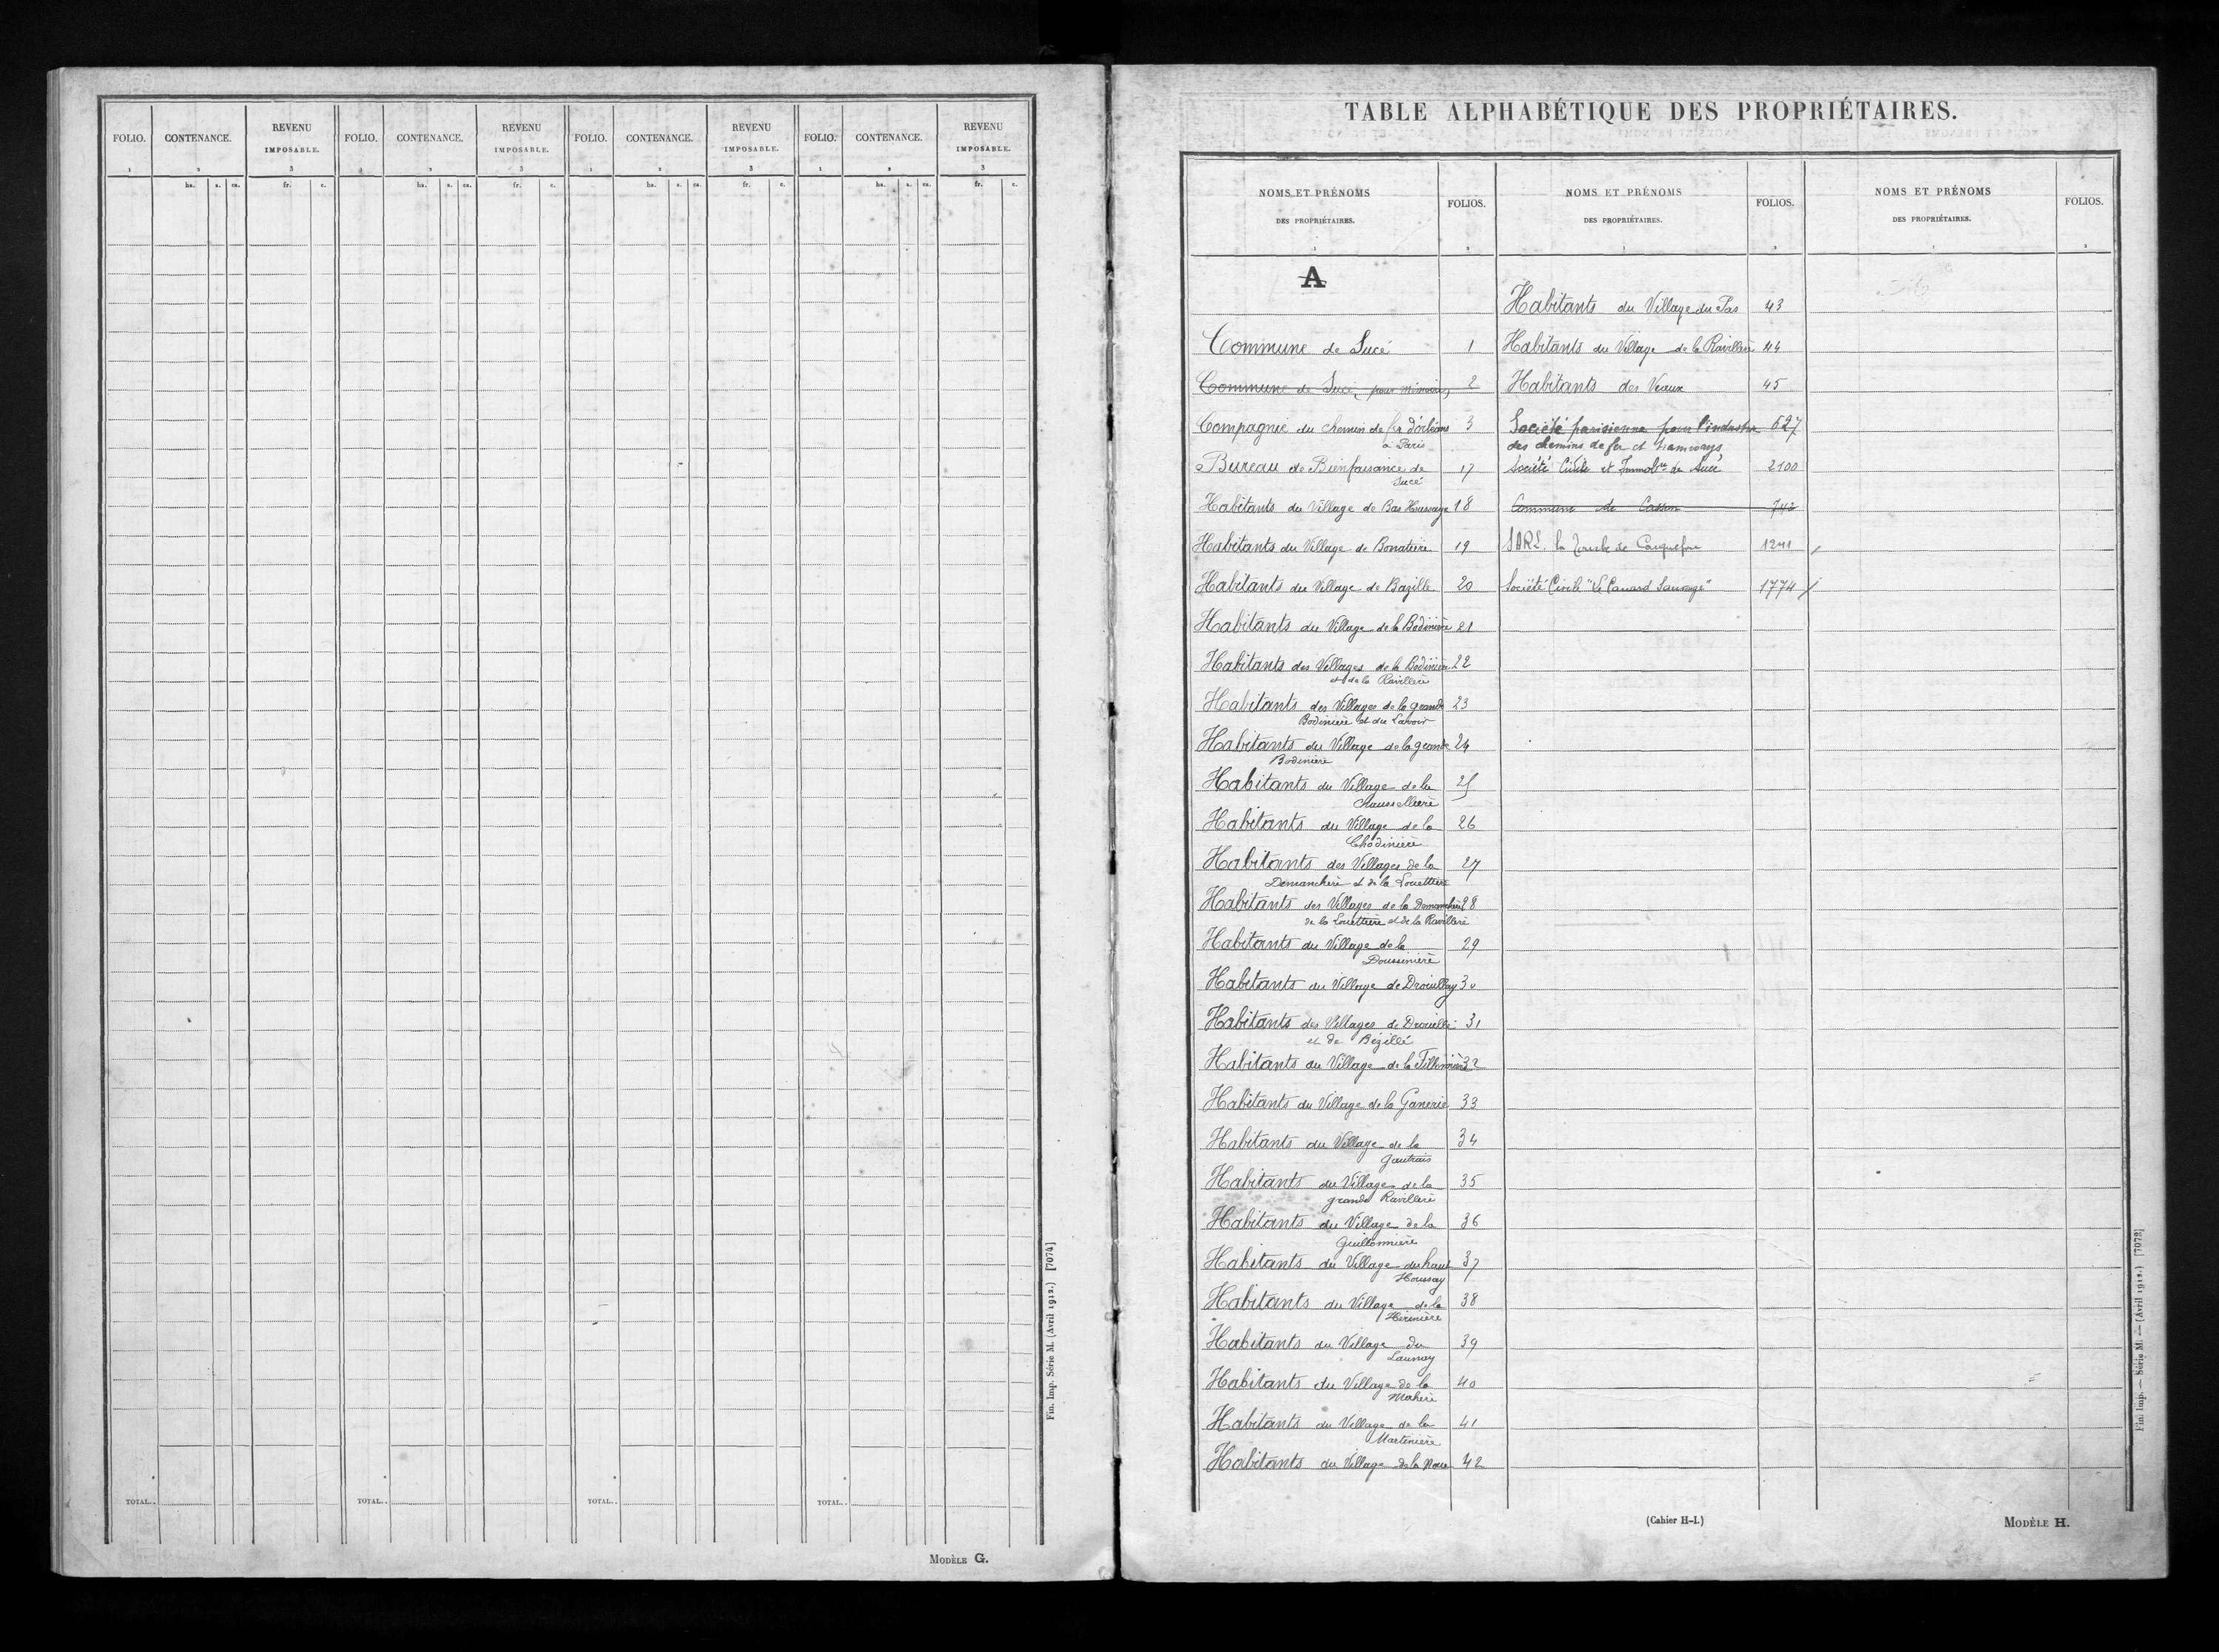 FOLIO. CONTENANCE. REVENU IMPOSABLE. FOLIO. CONTENANCE. REVENU IMPOSABLE. FOLIO. CONTENANCE. REVENU IMPOSABLE. FOLIO. CONTENANCE. REVENU IMPOSABLE.
1 2 3 1 2 3 1 2 3 1 2 3
ha. a. ca. fr. c. ha. a. ca. fr. c. ha. a. ca. fr. c. ha. a. ca. fr. c.
TOTAL.. TOTAL.. TOTAL.. TOTAL..
MODÈLE G.
Fin. Imp. Série M. (Avril 1912.) [7074]
TABLE ALPHABÉTIQUE DES PROPRIÉTAIRES.
NOMS ET PRÉNOMS DES PROPRIÉTAIRES. FOLIOS. NOMS ET PRÉNOMS DES PROPRIÉTAIRES. FOLIOS. NOMS ET PRÉNOMS DES PROPRIÉTAIRES. FOLIOS.
1 2 1 2 1 2
A
Commune de Sucé 1
Commune de Sucé, pour mémoire, 2
Compagnie du chemin de fer d'orléans 3
à Paris
Bureau de Bienfaisance de 17
Sucé
Habitants du Village de Bas 18
Habitants du Village de Bonatière 19
Habitants du Village de Bazille 20
Habitants du Village de la Bodinière 21
Habitants des Villages de la Bodinière 22
et de la Ravillère
Habitants des Villages de la grande 23
Bodinière et du Lavoir
Habitants du Village de la grande 24
Bodinière
Habitants du Village de la 25
Chaussellière
Habitants du Village de la 26
Chodinière
Habitants des Villages de la 27
Demanchère et de la Louettière
Habitants des Villages de la Demanchère 28
de la Louettière et de la Ravillère
Habitants du Village de la 29
Doussinière
Habitants du Village de Drouillay 30
Habitants des Villages de 31
et de Bézillé
Habitants du Village de la 32
Habitants du Village de la Ganerie 33
Habitants du Village de la 34
Gautrais
Habitants du Village de la 35
grande Ravillère
Habitants du Village de la 36
Guiltonnière
Habitants du Village du haut 37
Houssay
Habitants du Village de la 38
Herinière
Habitants du Village du 39
Launay
Habitants du Village de la 40
Mahère
Habitants du Village de la 41
Martinière
Habitants du Village de la Noue 42
Habitants du Village du Pas 43
Habitants du Village de la Ravillère 44
Habitants des Veaux 45
Société parisienne pour l'industrie 527
des chemins de fer et tramways
Société Civile et Immob^re de Sucé 2100
Commune de Casson 742
SARL. la de Carquefou 1241
Société Civile "Le Canard Sauvage" 1774
(Cahier H-I.)
MODÈLE H.
Fin. Imp. — Série M. — (Avril 1912.) [7072]